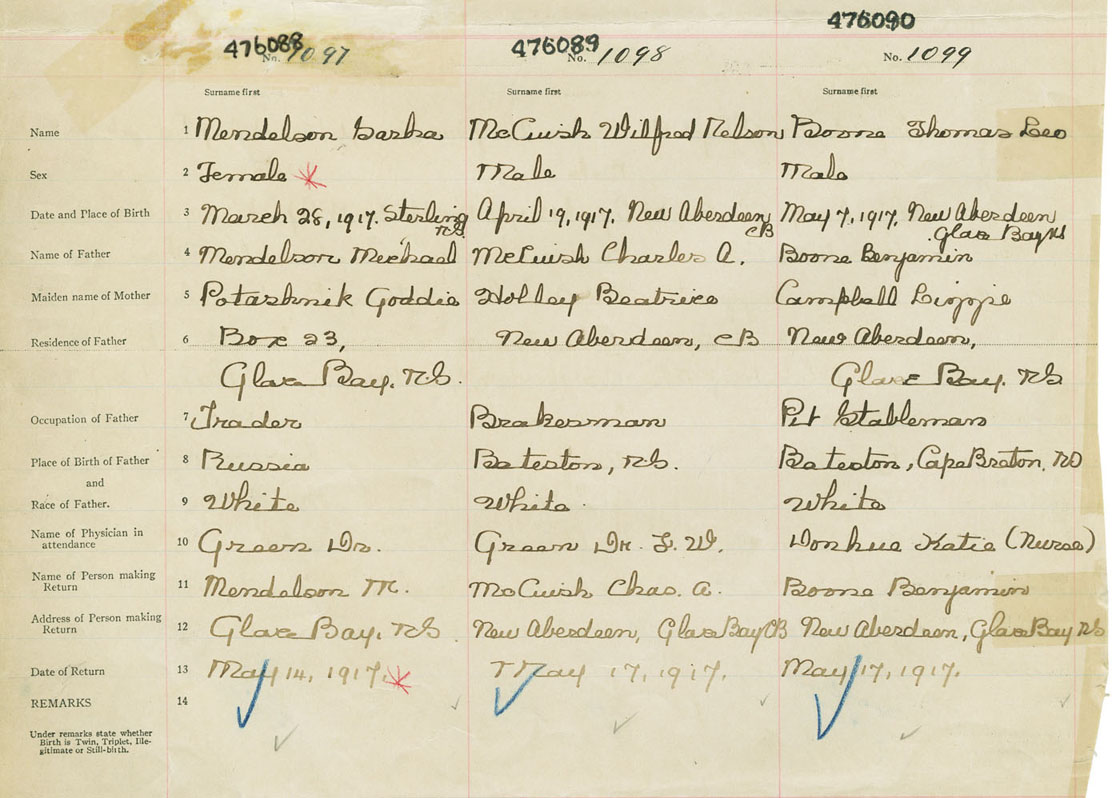 476088 476089 476090
No. 1097 No. 1098 No. 1099
Surname first Surname first Surname first
Name 1 Mendelson McCuish Wilfred Nelson Boone Thomas Leo
Sex 2 Female * Male Male
Date and Place of Birth 3 March 28, 1917. Sterling April 19, 1917. New Aberdeen May 7, 1917, New Aberdeen
N.S. CB Glace Bay NS
Name of Father 4 Mendelson Michael McCuish Charles A. Boone Benjamin
Maiden name of Mother 5 Potashnik Goddie Holley Beatrice Campbell Lizzie
Residence of Father 6 Box 23, New Aberdeen, CB New Aberdeen,
Glace Bay, N.S. Glace Bay, N.S
Occupation of Father 7 Trader Brakesman Pit Stableman
Place of Birth of Father 8 Russia Bateston, N.S. Bateston, Cape Breton,
and
Race of Father. 9 White White White
Name of Physician in
attendance 10 Green Dr. Green Dr. F. W. Donhue Katie (Nurse)
Name of Person making
Return 11 Mendelson M. McCuish Chas. A. Boone Benjamin
Address of Person making
Return 12 Glace Bay, N.S. New Aberdeen, Glace Bay CB New Aberdeen, Glace Bay N.S
Date of Return 13 May 14, 1917. * May 17, 1917. May 17, 1917.
REMARKS 14
Under remarks state whether
Birth is Twin, Triplet, Ille-
gitimate or Still-birth.